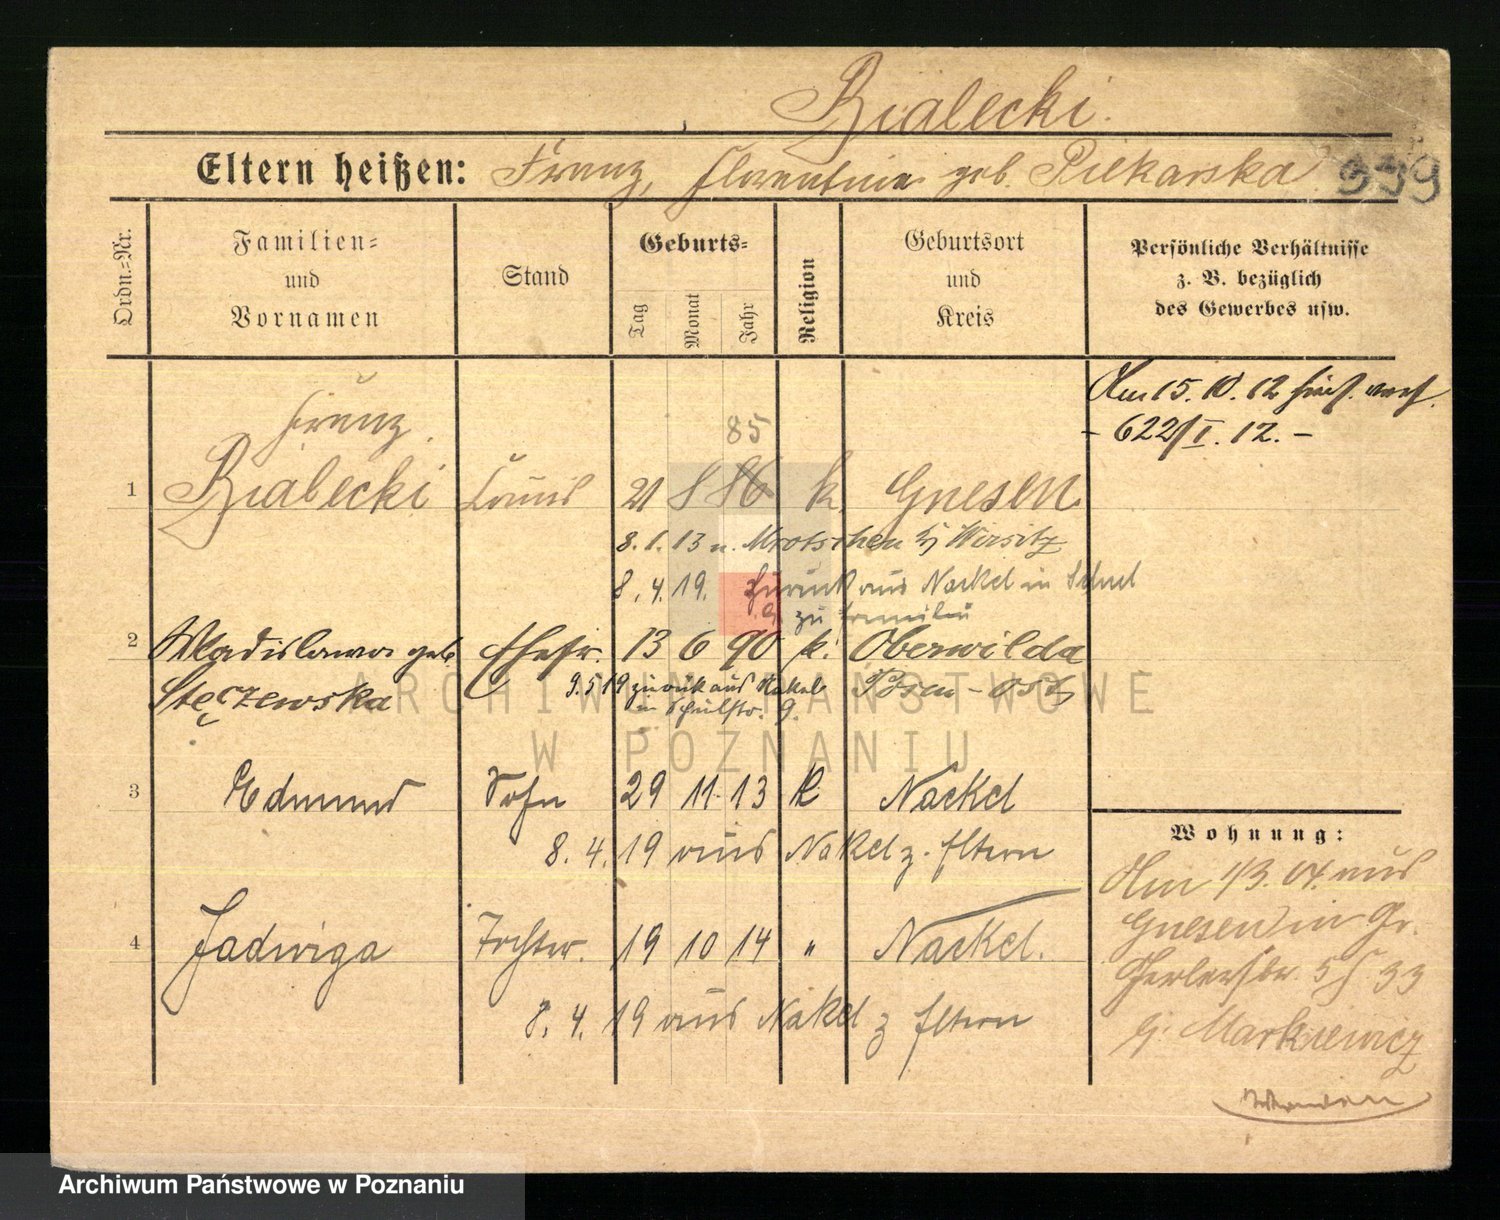 Bialecki.
Eltern heißen: Franz, Florentine geb. Piekarska 339
Ordn.-Nr.
Familien-
und
Vornamen
Stand
Geburts-
Tag
Monat
Jahr
Religion
Geburtsort
und
Kreis
Persönliche Verhältnisse
z. B. bezüglich
des Gewerbes usw.
Am 15. 10. 12 hies. verh.
- 622/I. 12. -
Franz. 85
1 Bialecki 21 8 86 k. Gnesen
8. 1. 13 n. Mrotschen Wirsitz
8. 4. 19. zurück aus Nackel in
9 zu Familie
2 Wladislawa geb. Ehefr. 13 6 90 k. Oberwilda
Stęczewska 9. 5 19 zurück aus Nakel Posen-Ost
in Schulstr. 9.
3 Edmund Sohn 29 11. 13 k. Nackel
8. 4. 19 aus Nakel z. Eltern
4 Jadwiga Tochter. 19 10 14 " Nackel.
8. 4. 19 aus Nakel z Eltern
Wohnung:
Am 1/3. 04. aus
Gnesen in Gr.
Gerberstr. 33
b. Markiewicz
ARCHIWUM PAŃSTWOWE
W POZNANIU
Archiwum Państwowe w Poznaniu